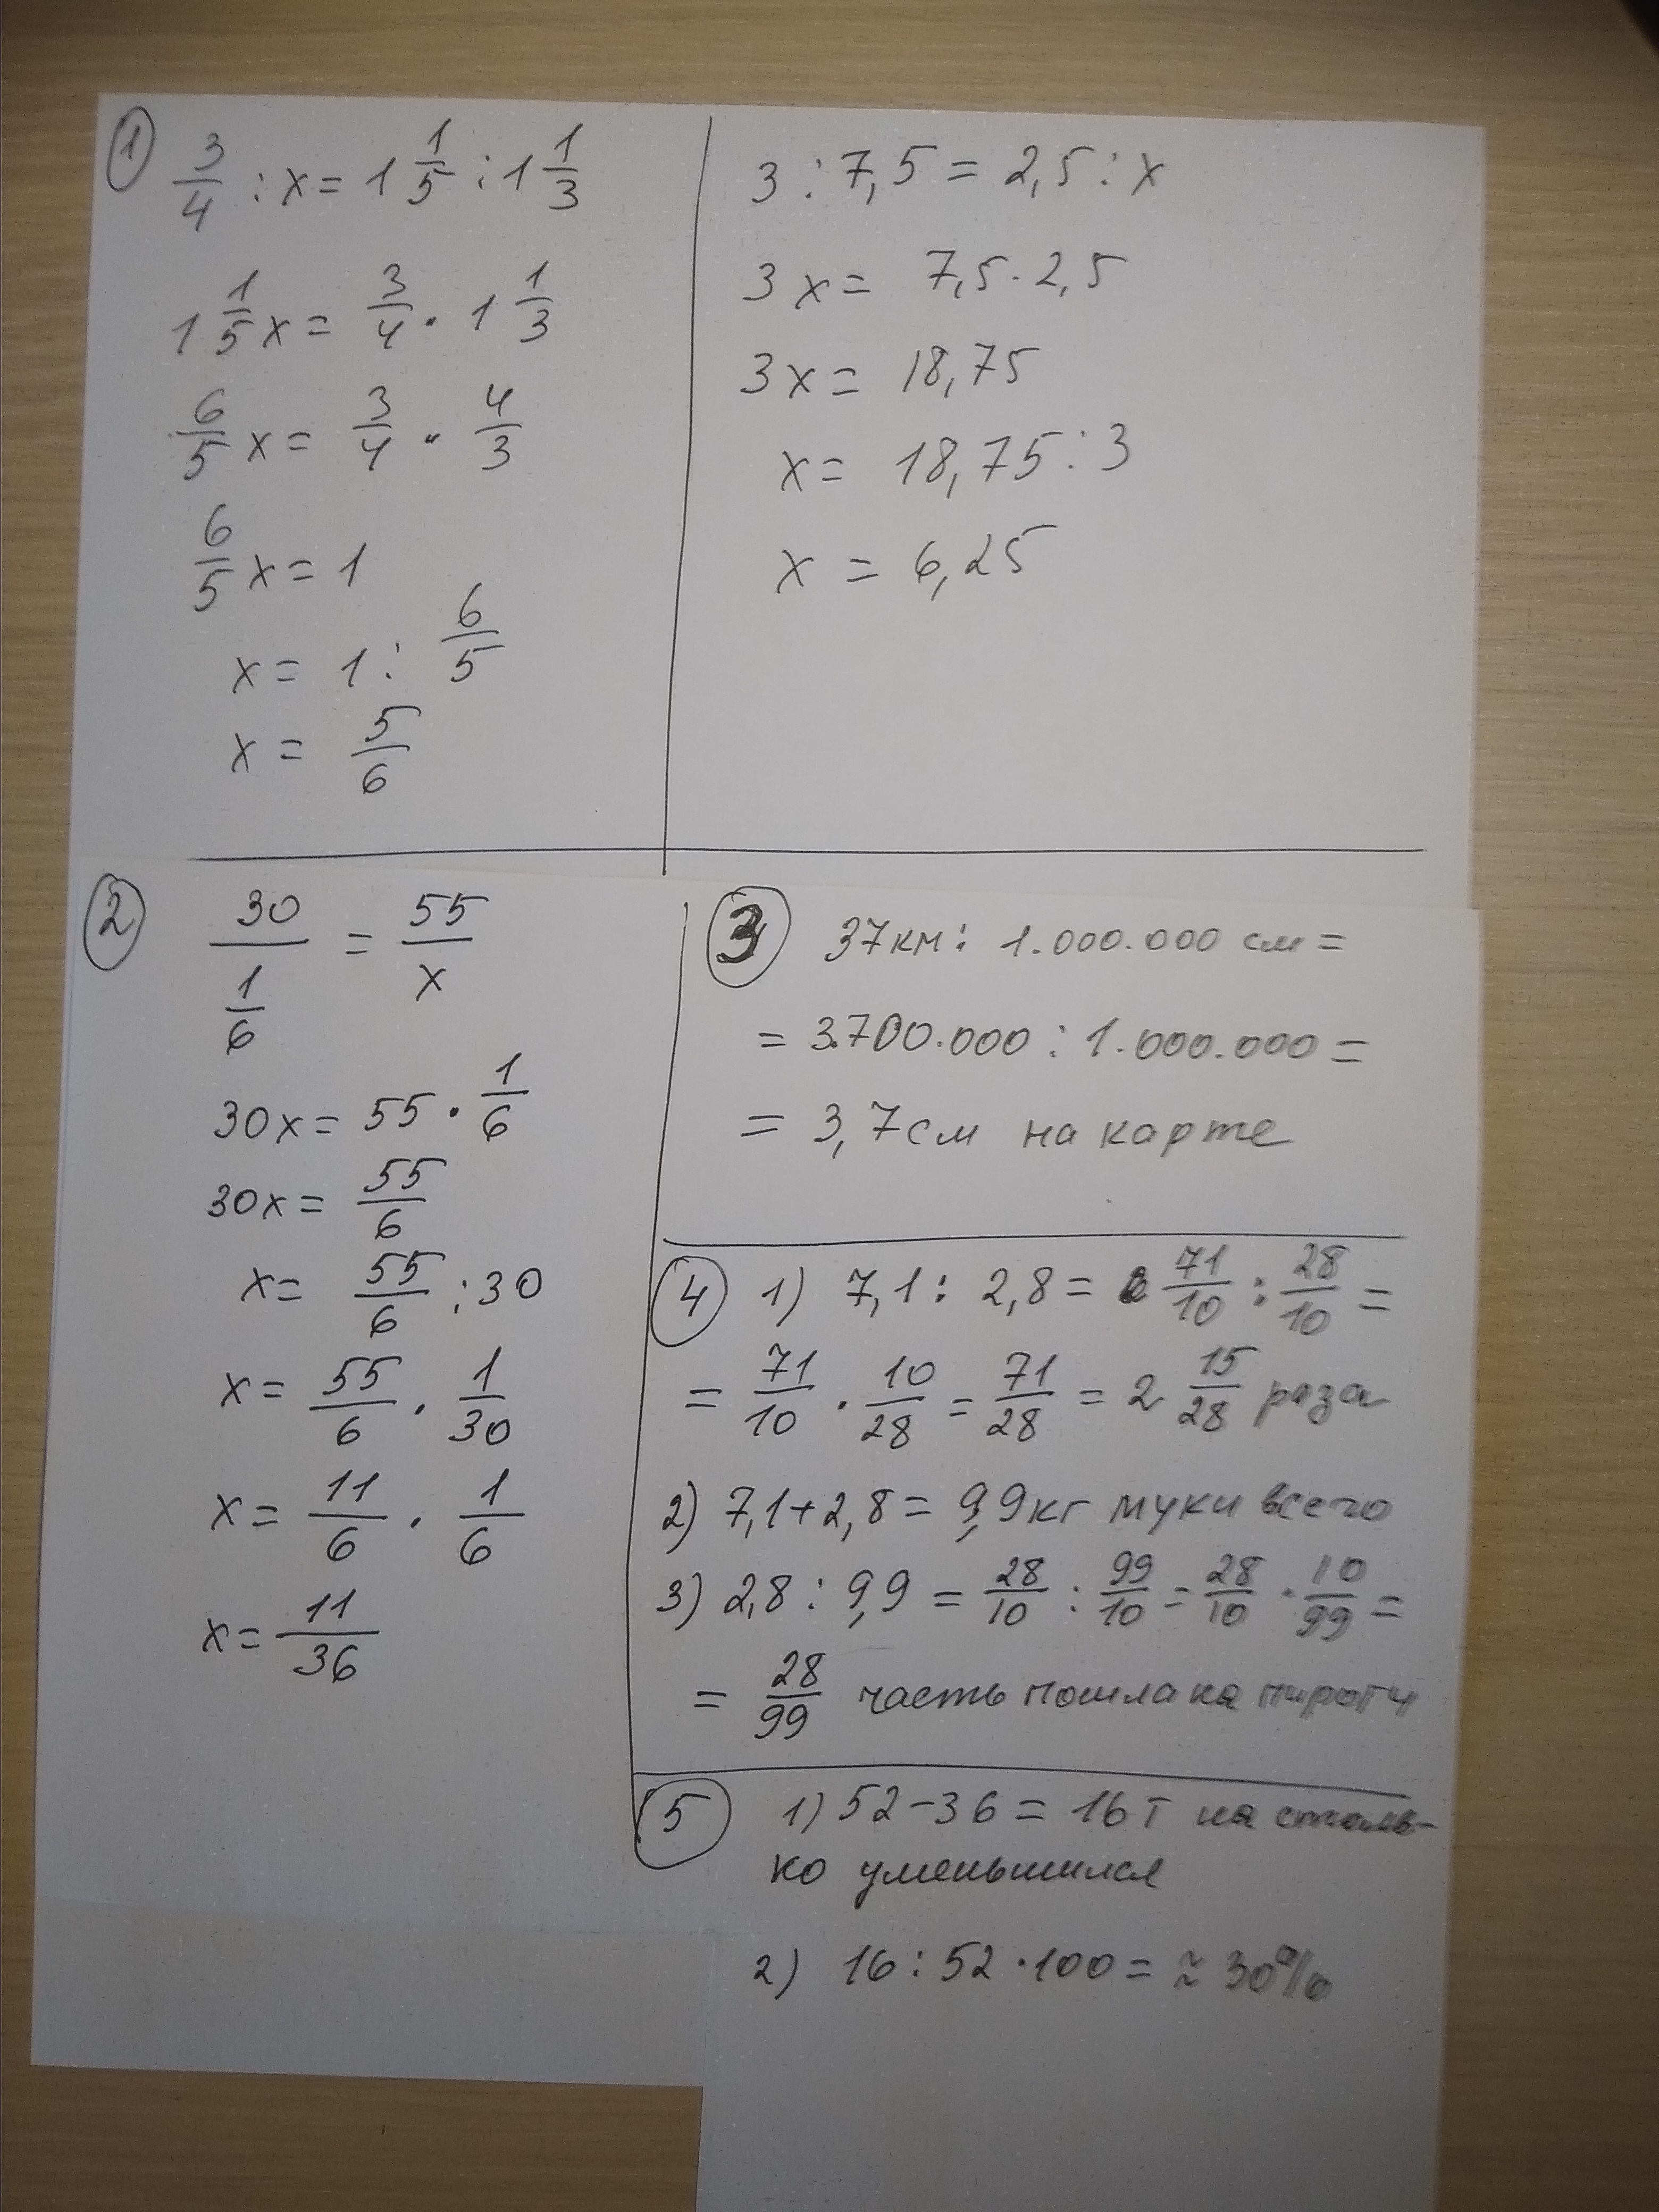 1
3/4 : x = 1 1/5 : 1 1/3
1 1/5 x = 3/4 · 1 1/3
6/5 x = 3/4 · 4/3
6/5 x = 1
x = 1 : 6/5
x = 5/6
3 : 7,5 = 2,5 : x
3x = 7,5 · 2,5
3x = 18,75
x = 18,75 : 3
x = 6,25
2
30 / 1/6 = 55/x
30x = 55 · 1/6
30x = 55/6
x = 55/6 : 30
x = 55/6 · 1/30
x = 11/6 · 1/6
x = 11/36
3 37км : 1.000.000 см =
= 3.700.000 : 1.000.000 =
= 3,7см на карте
4 1) 7,1 : 2,8 = 71/10 : 28/10 =
= 71/10 · 10/28 = 71/28 = 2 15/28 раза
2) 7,1 + 2,8 = 9,9кг муки всего
3) 2,8 : 9,9 = 28/10 : 99/10 = 28/10 · 10/99 =
= 28/99 часть пошла на пироги
5 1) 52 - 36 = 16т на столь-
ко уменьшился
2) 16 : 52 · 100 = ≈ 30%